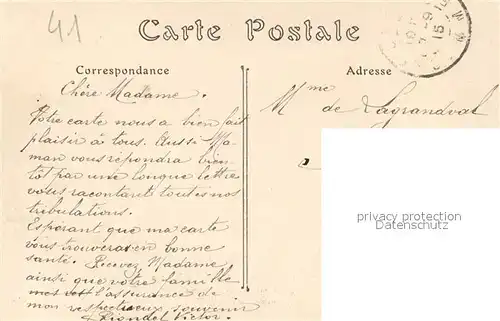 41
Carte Postale
Correspondance
Adresse
Chère Madame.
Mme
de Lagrandval
Votre carte nous a bien fait
plaisir à tous. Aussi Ma-
man vous répondra bien
tôt par une longue lettre
vous racontant toutes nos
tribulations.
Esperant que ma carte
vous trouveras en bonne
santé. Recevez Madame
ainsi que votre famille
mes l'assurance de
mon respectieux souvenir
Riondel Victor.
privacy protection
Datenschutz